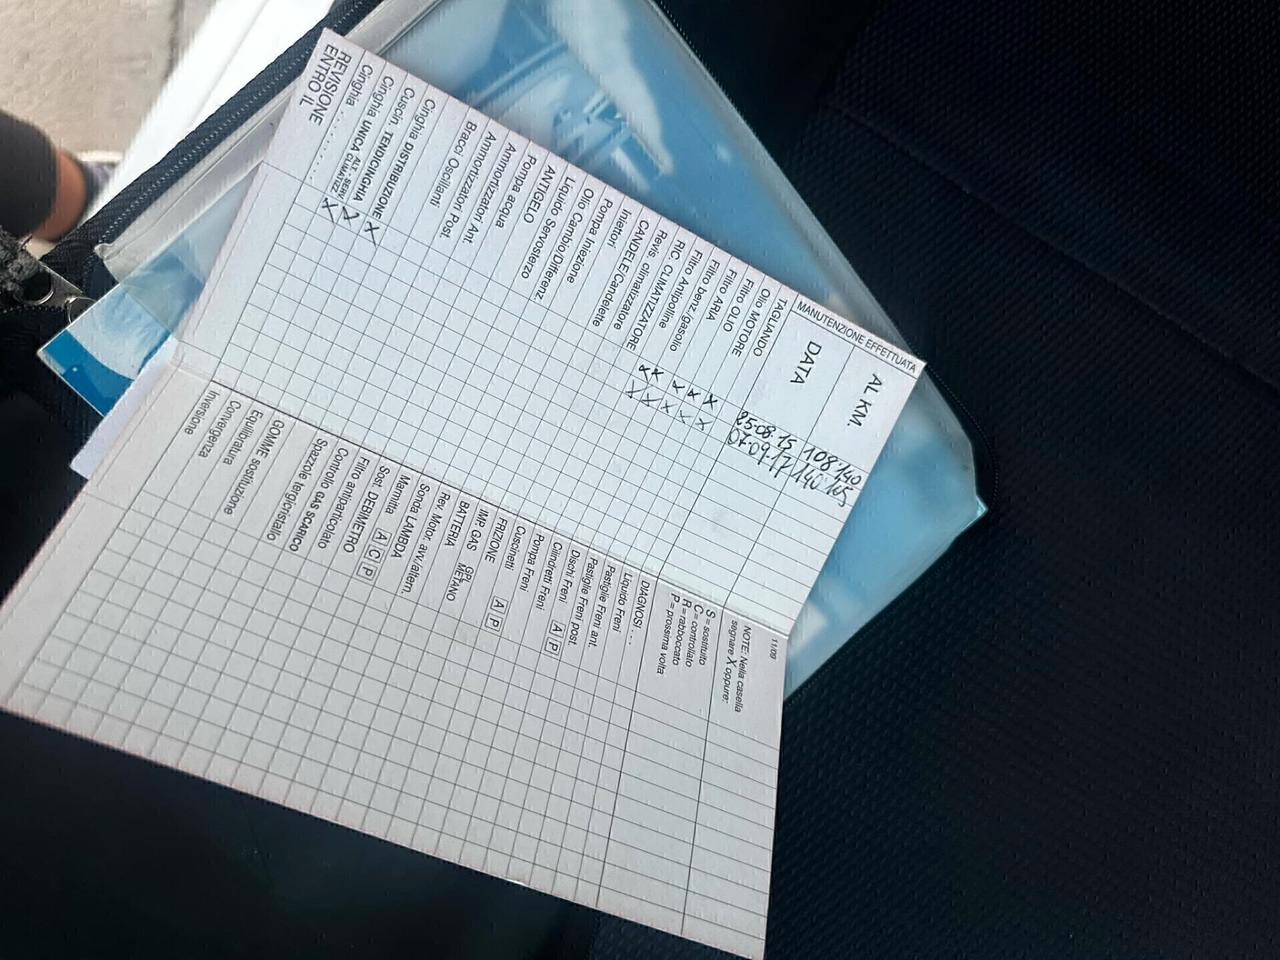 MANUTENZIONE EFFETTUATA
AL KM. 108140 140165
DATA 25.08.15 07.09.17
TAGLIANDO
Olio MOTORE X X
Filtro OLIO X X
Filtro ARIA X X
Filtro benz./gasolio X X
Filtro Antipolline X X
RIC. CLIMATIZZATORE
Revis. climatizzatore
CANDELE/Candelette
Iniettori
Pompa Iniezione
Olio Cambio/Differenz.
Liquido Servosterzo
ANTIGELO
Pompa acqua
Ammortizzatori Ant.
Ammortizzatori Post.
Bracci Oscillanti
Cinghia DISTRIBUZIONE X
Cuscin. TENDICINGHIA X
Cinghia UNICA ALT. - SERV. CLIMATIZZ. X
Cinghia ............
REVISIONE
ENTRO IL
11/09
NOTE: Nella casella
segnare X oppure:
S = sostituito
C = controllato
R = rabboccato
P = prossima volta
DIAGNOSI ....
Liquido Freni
Pastiglie Freni ant.
Pastiglie Freni post.
Dischi Freni A P
Cilindretti Freni
Pompa Freni
Cuscinetti A P
FRIZIONE
IMP. GAS GPL METANO
BATTERIA
Rev. Motor. avv/altern.
Sonda LAMBDA
Marmitta A C P
Sost. DEBIMETRO
Filtro antiparticolato
Controllo GAS SCARICO
Spazzole tergicristallo
GOMME sostituzione
Equilibratura
Convergenza
Inversione